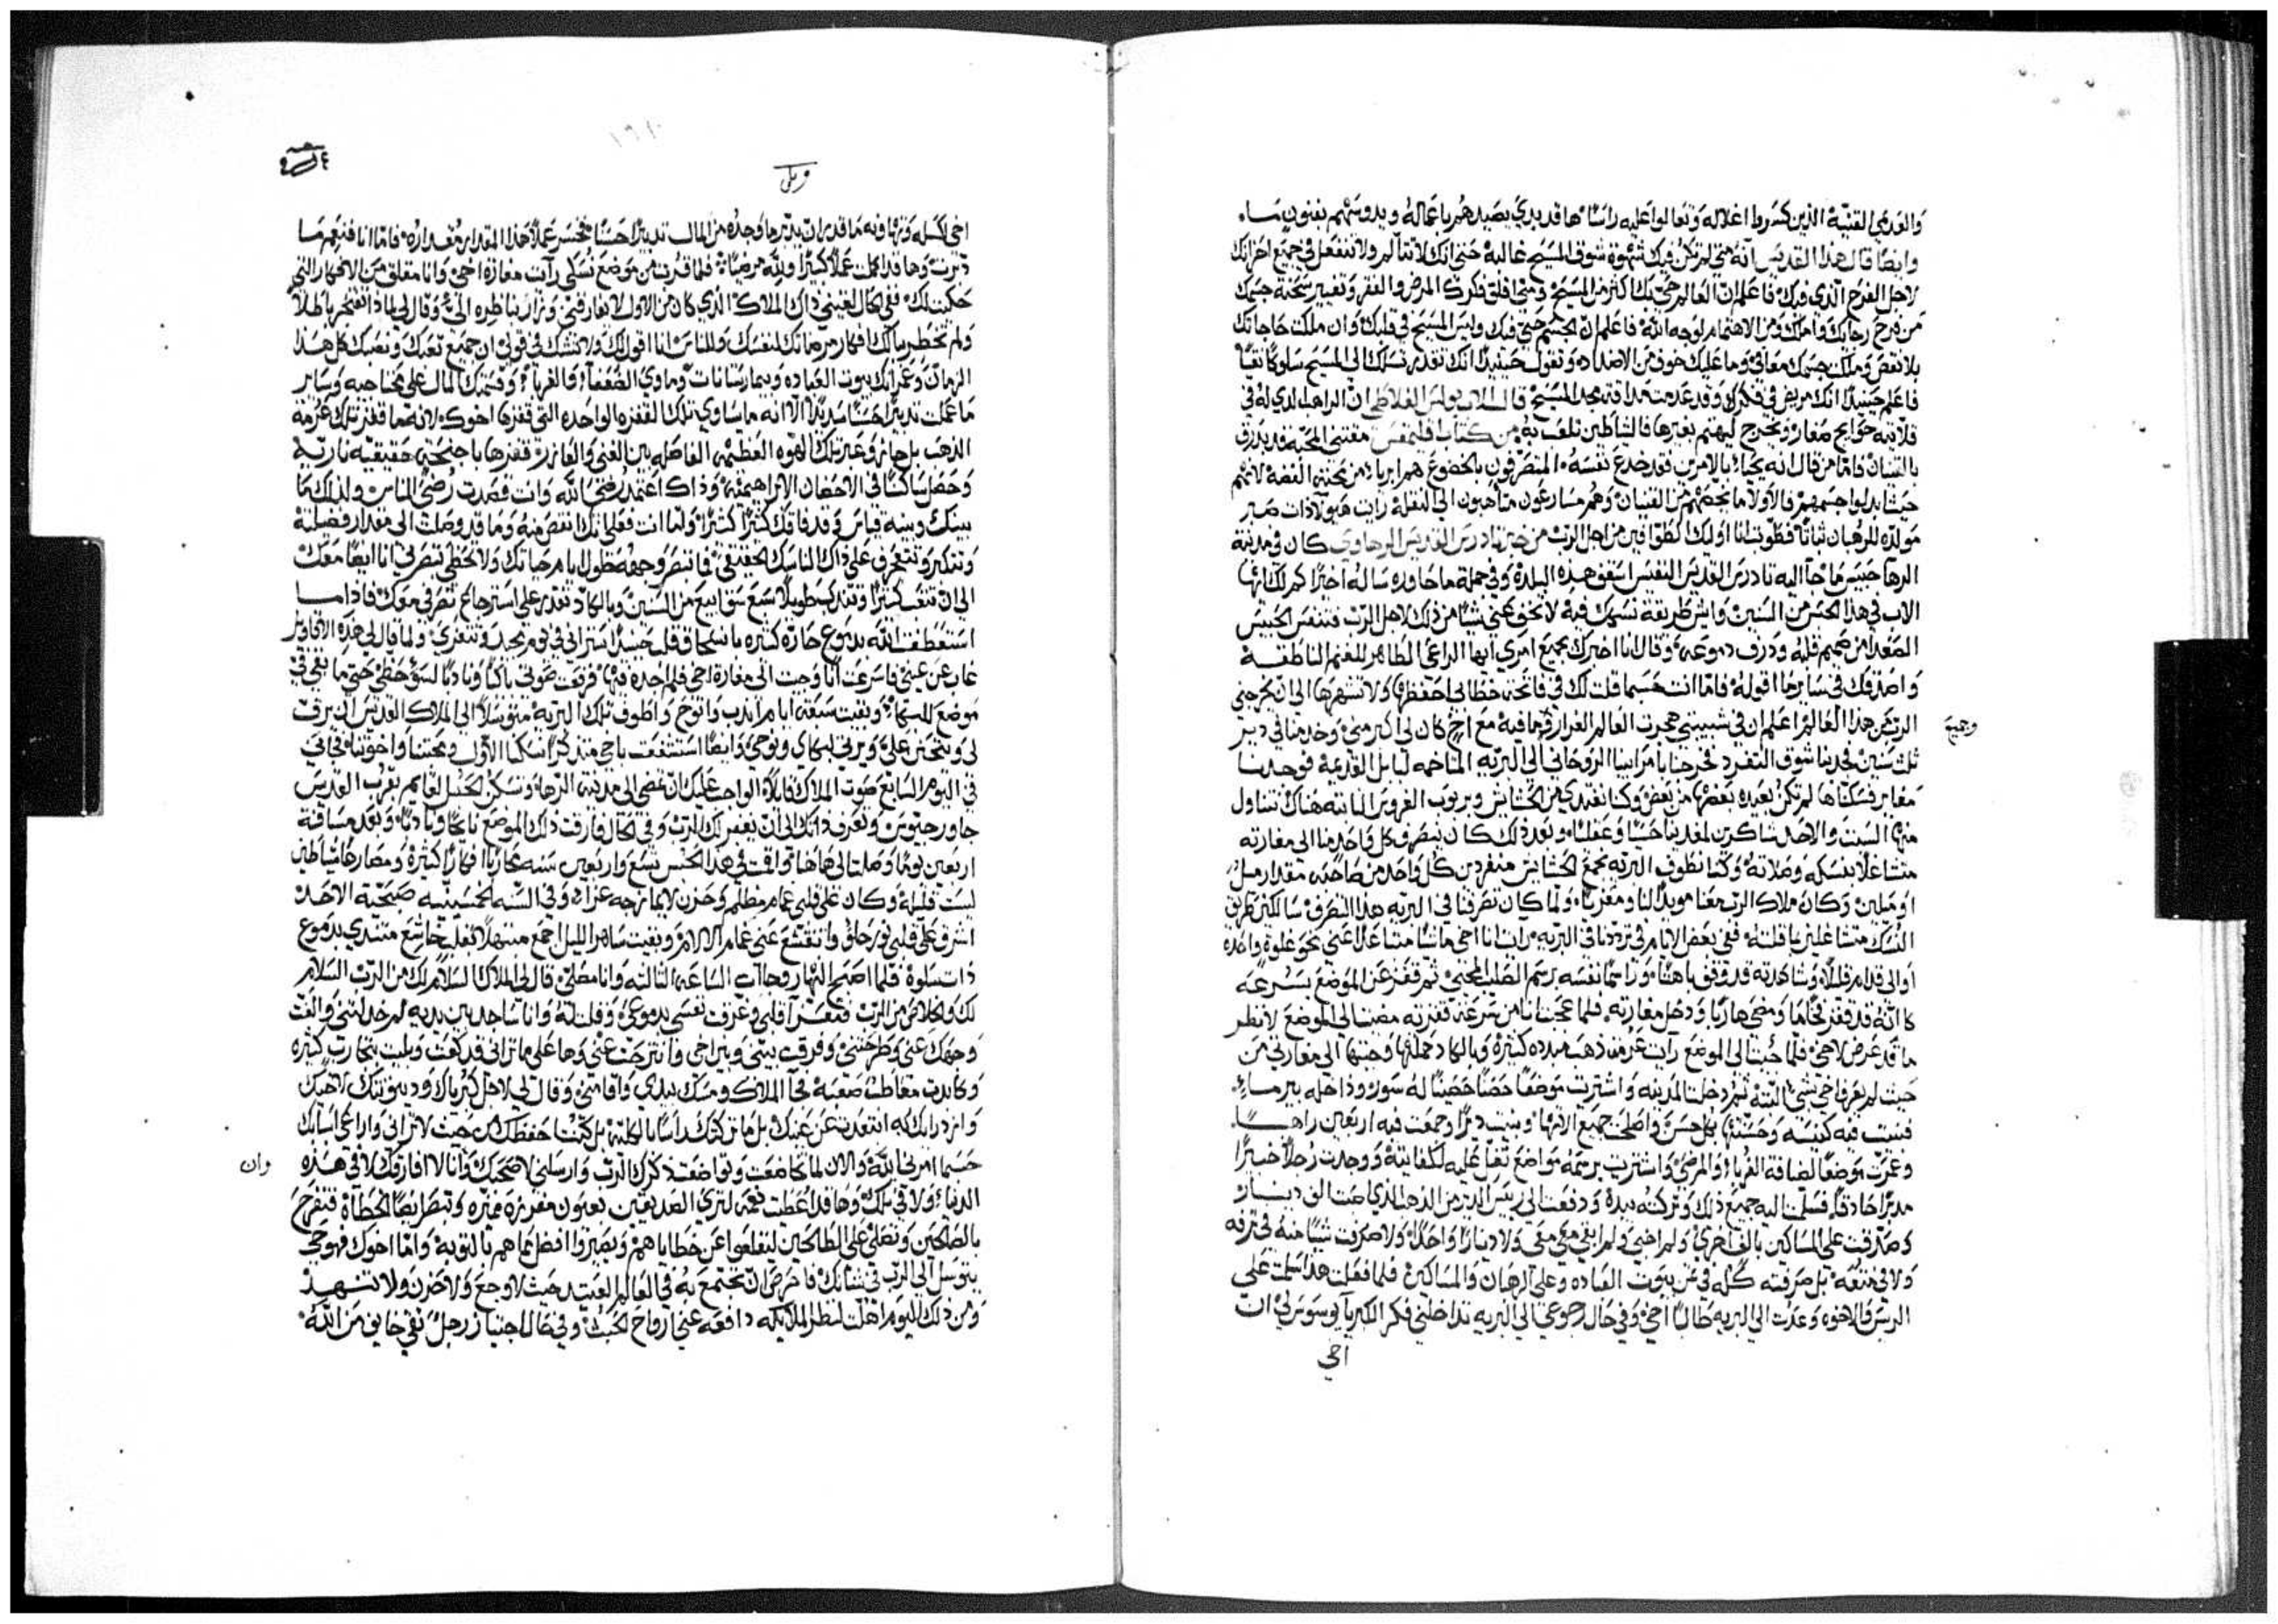 والغدمي القنية الذين كسروا اغلاله وتعالوا عليه راسًا ها قد بدي يصيدهم باعماله ويدوسهم بفنون ما
وايضًا قال هذا القديس انه متى لم تكن فيك شهوة شوق المسيح غالبة حتى انك لا تتالم ولا تنفعل في جميع احزانك
لاجل الفرح الذي فيك فاعلم ان العالم حي فيك اكثر من المسيح ومتى اقلق فكرك المرض والفقر وتغيير سحنة جسمك
من فرح رجايك واملك ومن الاهتمام لوجه الله فاعلم ان الجسم حي فيك وليس المسيح في قلبك وان ملكت حاجاتك
بلا نقص وملكت جسمك معافى وما عليك خوف من الاضداد وتقول حينيذ انك تقدر تسلك الى المسيح سلوكًا نقيًا
فاعلم حينيذ انك مريض في فكرك وقد عدمت مذاقة مجد المسيح قال الاب بولس الغلاطي ان الراهب الذي له في
قلايته حوايج صغار ويخرج ليهتم بغيرها فالشياطين تلعب به من كتاب فليمفس مقتني المحبة قد يدرق
بالنسيان فاما من قال انه يحبا بالامرين فقد خدع نفسه المتصرفون بالخضوع هم ابريا من محبة الفضة لانهم
حيث بذلوا جسمهم فالاولا ما تخصهم من القنيان وهم مسارعون متاهبون الى النقلة رايت هيولا ذات صبر
مولده للرهبان ثباتًا فطوبت انا اوليك الطوافين من اجل الرب من خبر تادرس القديس الرهاوي كان في مدينة
الرها حبيس ما جا اليه تادرس القديس النفيس اسقف هذه البلدة وفي جملة ما حاوره ساله اخبرنا كم لك ايها
الاب في هذا الحبس من السنين وايش طريقة نسكك فيه لا تخف عني شيا من ذلك لاجل الرب فتنفس الحبيس
الصعدا من صميم قلبه وذرف دموعه وقال انا اخبرك بجميع امري ايها الراعي الطاهر للغنم الناطقة
واصدقك في ساير ما اقوله فاما انت حسبما قلت لك في فاتحة خطابي احفظها ولا تشهرها الى ان يخرجني
الرب من هذا العالم اعلم ان في شبيبتي هجرت العالم الغرار وما فيه مع اخ كان لي اكبر مني وخدمنا في دير
ثلث سنين فجذبنا شوق التفرد فخرجنا بامر ابينا الروحاني الى البريه المتاخمه لبابل القديمة فوجدنا
مغاير فسكناها لم تكن بعيده بعضها من بعض وكنا نغتدي من الحشايش ونربوب الغروس النابته هناك نتناول
منها السبت والاحد شاكرين لمغدينا حسيًا وعقليًا وبعد ذلك كان ينصرف كل واحد منا الى مغارته
متشاغلًا بنسكه وصلاته وكنا نطوف البريه نجمع الحشايش منفردين كل واحد من صاحبه مقدار ميل
او ميلين وكان ملاك الرب معنا مويدًا لنا ومعزيًا ولما كان تصرفنا في البريه هذا التصرف سالكين طريق
النسك متشاغلين بافلته ففي بعض الايام في ترددنا في البريه رايت انا اخي ماشيًا متباعدًا عني نحو غلوة واحدة
كانه قد قفز فخًا ما ومضى هاربًا ودخل مغارته فلما عجبت انا من سرعة قفزته مضيت الى الموضع لانظر
ما قد عرض لاخي فلما جيت الى الموضع رايت عرمة ذهب مبدده كثيرة وبالكاد حملتها وجبتها الى مغارتي من
حيث لم يعرف اخي بشي البتة ثم دخلت المدينه واشتريت موضعًا حصنًا حصينًا له سور وداخله بير ماء
فبنيت فيه كنيسه وحسنتها بكل حسن واصلحت جميع الاتها وبنيت ديرًا وجمعت فيه اربعين راهبًا
وعمرت موضعًا لضيافة الغربا والمرضى واشتريت برسمه مواضع تغل عليه لكفايته ووجدت رجلًا خبيرًا
مدبرًا حاذقًا فسلمت اليه جميع ذلك وتركته بيده ودفعت الى رييس الدير من الذهب الذي صبت الف دينار
وصدقت على المساكين بالف اخرى ولم اخبي ولم ابقي معي ولا دينارًا واحدًا ولا صرفت شيًا منه في ترفه
ولا في متعه بل صرفته كله في بيوت العباده وعلى الرهبان والمساكين فلما فعلت هذا سلمت على
الرييس والاخوه وعدت الى البريه طالبًا اخي وفي حال رجوعي الى البريه تداخلني فكر الكبريا يوسوس لي ان
اخي
وجميع
اخي لكسله وتهاونه ما قدر ان يدبر ما وجده من المال تدبيرًا حسنًا فخسر عملًا هذا المقدار مقداره فاما انا فنعم ما
دبرت وها قد اكملت عملًا كبيرًا ولله مرضيًا فلما قربت من موضع نسكي رايت مغارة اخي وانا مقلق من الافكار التي
حكيت لك ففي الحال لقيني ذاك الملاك الذي كان من الاول لا يفارقني ونزل بناظره الي وقال لي لماذا تفتخر باطلًا
ولم تخطر ببالك افكار مرضاتك لنفسك وللناس انا اقول لك ولا تشك في قولي ان جميع تعبك ونصبك كل هذا
الزمان وعمرانك بيوت العباده وبيمارستانات وماوي الضعفا والغربا وقسمتك المال على محتاجيه وساير
ما عملت تدبيرًا حسنًا سديدًا الا انه ما ساوي تلك القفزه الواحده التي قفزها اخوك لانه ما قفز تلك عرمة
الذهب بل جاز وعبر تلك الهوه العظيمه الفاصله بين الغني والعازر قفزها باجنحة حقيقيه ناريه
وحصل ساكنًا في الاحضان الابراهيميه وذاك اعتمد رضى الله وانت قصدت رضى الناس ولذلك ما
بينك وبينه قياس وقد فاقك كثيرًا كثيرًا ولما انت فعلى انك انقص منه وما قد وصلت الى مقدار فضيلته
وتتكبر وتفتخر على ذاك الناسك الحقيقي فما تبصر وجهه طول ايام حياتك ولا تحظى تبصرني انا ايضًا معك
الى ان تتعب كثيرًا وتتنسك طويلًا سبع سوابيع من السنين وبالكاد تقدر على استرجاع تصرفي معك فاذا ما
استعطفت الله بدموع حارة كثيره بانسحاق قلب حينيذ تراني في يوم تجد وتتعزي ولما قال لي هذه الاقاويل
غاب عن عيني فاسرعت انا وجيت الى مغارة اخي فلم اجده فيها فرفعت صوتي باكيًا ونادبًا لسو حظي حتى ما بقي في
موضع للبكاء وبقيت سبعة ايام اندب وانوح واطوف تلك البريه متوسلًا الى الملاك القديس ان يرق
لي ويتحنن علي ويرثي لبكاي ونوحي وايضًا استشفعت باخي متذكرًا نسكنا الاول ومحبتنا واخوتنا فجاني
في اليوم السابع صوت الملاك قايلًا الواجب عليك ان تمضي الى مدينة الرها وتسكن الحبس القايم بقرب القديس
جاورجيوس وتعرف ذاتك الى ان يغفر لك الرب وفي الحال فارقت ذلك الموضع نايحًا ونادبًا وبعد مسافة
اربعين يومًا وصلت الى هاهنا واقمت في هذا الحبس تسع واربعين سنه محاربًا افكارًا كثيرة ومصارعًا شياطين
ليست قليلة وكان على قلبي غمام مظلم وحزن لا يمازجه عزاء وفي السنه الخمسينيه صبحية الاحد
اشرق على قلبي نور حلو وانقشع عني غمام الالام وبقيت ساهرًا الليل اجمع مبتهلًا بقلب خاشع متندي بدموع
ذات سلوة فلما اصبح النهار وجات الساعه الثالثه وانا مصلي قال لي الملاك السلام لك من الرب السلام
لك والخلاص من الرب فتعزا قلبي وغرقت نفسي بدموعي وقلت له وانا ساجد بين يديه لم خذلتني والفت
وجهك عني وطرحتني وفرقت بيني وبين اخي وانتزحت عني وها على ما تراني قد كففت وبليت بتجارب كثيره
وكابدت مغاطس صعبة فجا الملاك ومسك بيدي واقامني وقال لي لاجل كبرياك ودينونتك لاخيك
وازدرايك به ابتعدت عن عينك بل ما تركتك راسًا بالكليه بل كنت احفظك من حيث لا تراني واراعي اسبابك
حسبما امرني الله والان لما تخاضعت وتواضعت ذكرك الرب وارسلني لاصحبك وانا لا افارقك لا في هذه
الدنيا ولا في تلك وها قد اعطيت نعمة لترى الصديقين بعيون مفروزه مميزه وتبصر ايضًا الخطاة فتفرح
بالصالحين وتصلي على الطالحين ليقلعوا عن خطاياهم ويصيروا افضل مما هم بالتوبه واما اخوك فهو حي
يتوسل الى الرب في شانك فاحرص ان تجتمع به في العالم العتيد حيث لا وجع ولا حزن ولا تنهد
ومن ذلك اليوم اهلت لنظر الملايكه دافعه عني ارواح الخبث وفي حال اجتياز رجل تقي خايف من الله
وان